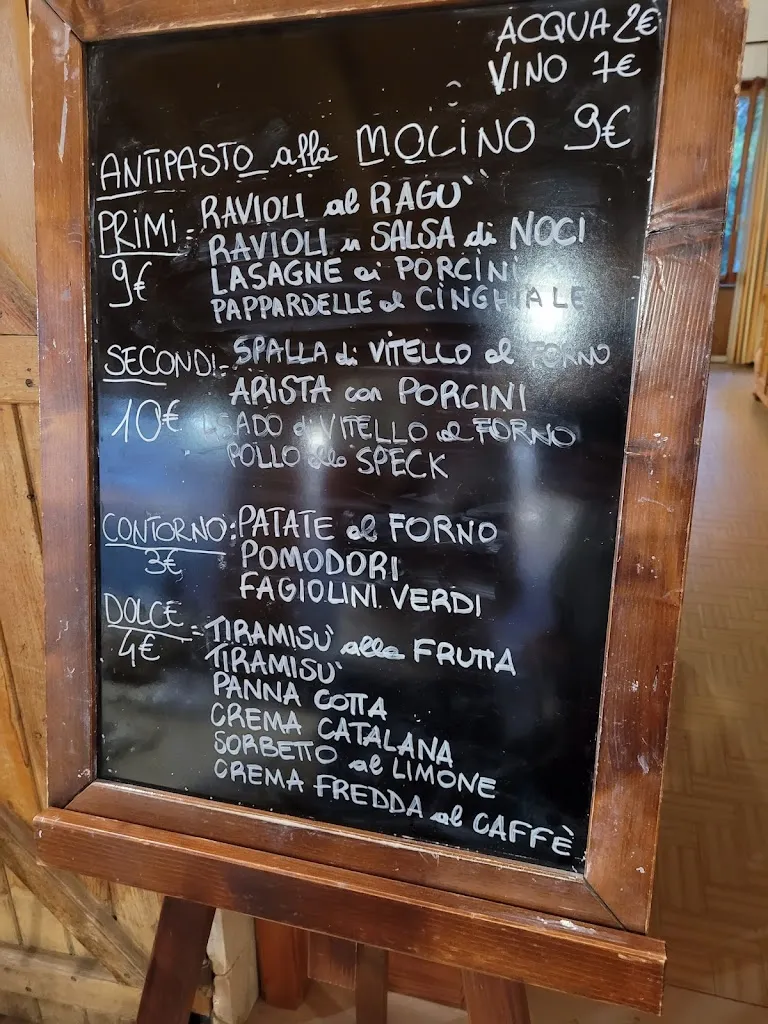 ACQUA 2€
VINO 7€
ANTIPASTO alla MOLINO 9€
PRIMI: RAVIOLI al RAGÙ
RAVIOLI in SALSA di NOCI
9€ LASAGNE ai PORCINI
PAPPARDELLE al CINGHIALE
SECONDI: SPALLA di VITELLO al FORNO
ARISTA con PORCINI
10€ VITELLO al FORNO
POLLO allo SPECK
CONTORNO: PATATE al FORNO
3€ POMODORI
FAGIOLINI VERDI
DOLCE: TIRAMISÙ alla FRUTTA
4€ TIRAMISÙ
PANNA COTTA
CREMA CATALANA
SORBETTO al LIMONE
CREMA FREDDA al CAFFÈ